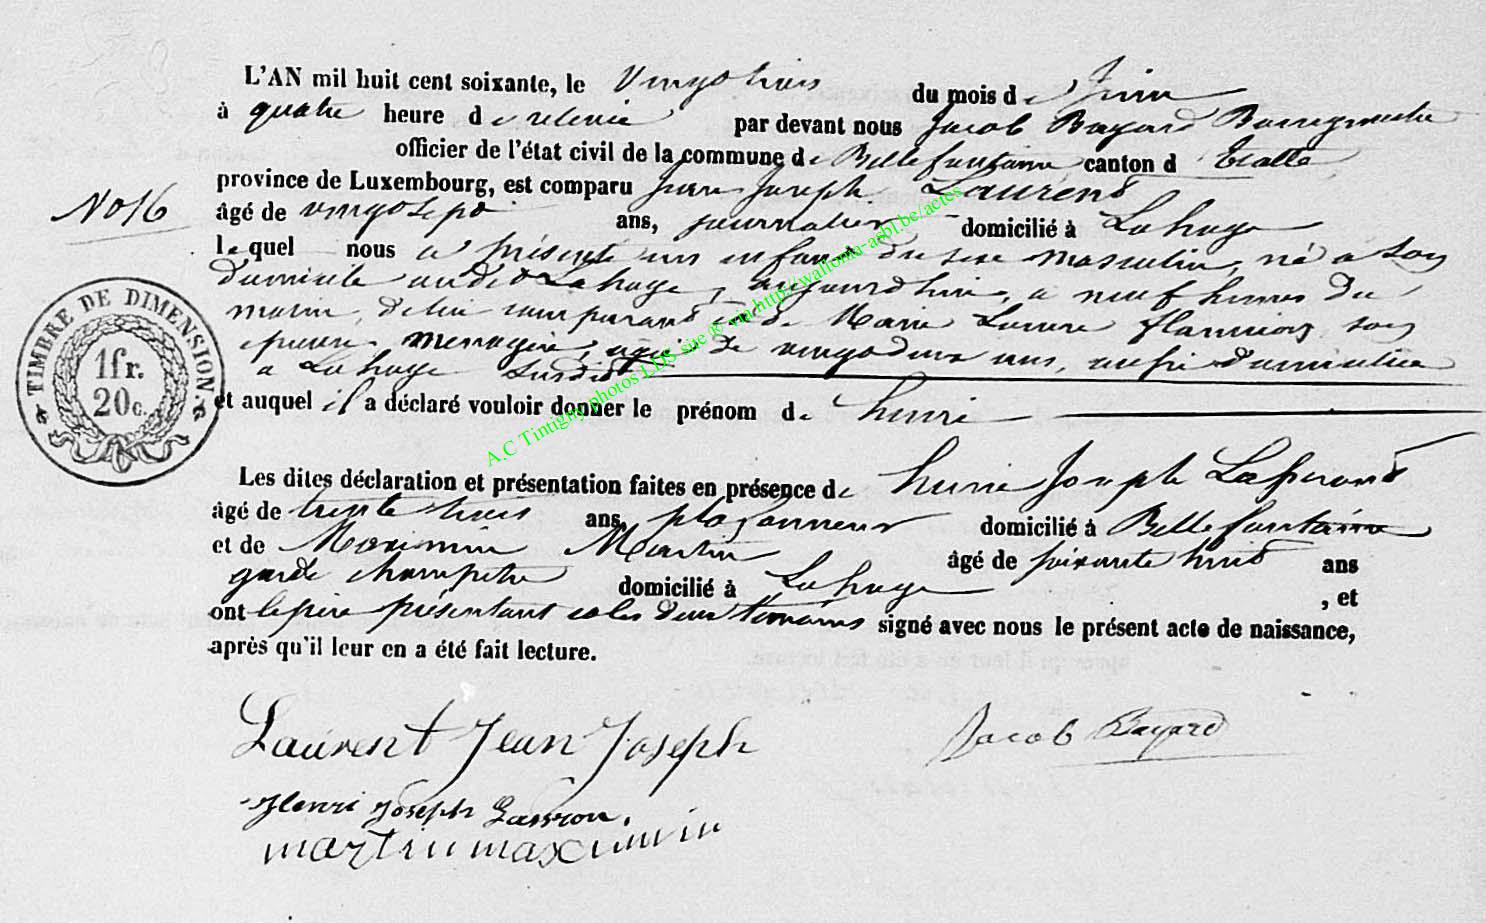 L'AN mil huit cent soixante, le Vingt trois du mois de Juin
à quatre heure de relevée par devant nous Jacob Bayard Bourgmestre
officier de l'état civil de la commune de Bellefontaine canton d'Etalle
province de Luxembourg, est comparu Jean Joseph Laurent
No 16
âgé de vingt sept ans, journalier domicilié à Lahage
lequel nous a présenté un enfant du sexe masculin, né a son
domicile audit Lahage, aujourdhui, a neuf heures du
matin, de lui comparant et de Marie Lavure son
epouse menagère, agée de vingt deux ans, aussi domiciliée
a Lahage susdit
et auquel il a déclaré vouloir donner le prénom de henri
TIMBRE DE DIMENSION.
1 fr.
20 c.
Les dites déclaration et présentation faites en présence de henri Joseph
âgé de trente trois ans, plafonneur domicilié à Bellefontaine
et de Maximin Martin âgé de soixante huit ans
garde champetre domicilié à Lahage, et
ont le père présentant et les deux témoins signé avec nous le présent acte de naissance,
après qu'il leur en a été fait lecture.
Laurent Jean Joseph
Jacob Bayard
Henri Joseph Lassron.
martin maximin
A.C Tintigny photos LDS site & via http://wallonia-asbl.be/actes